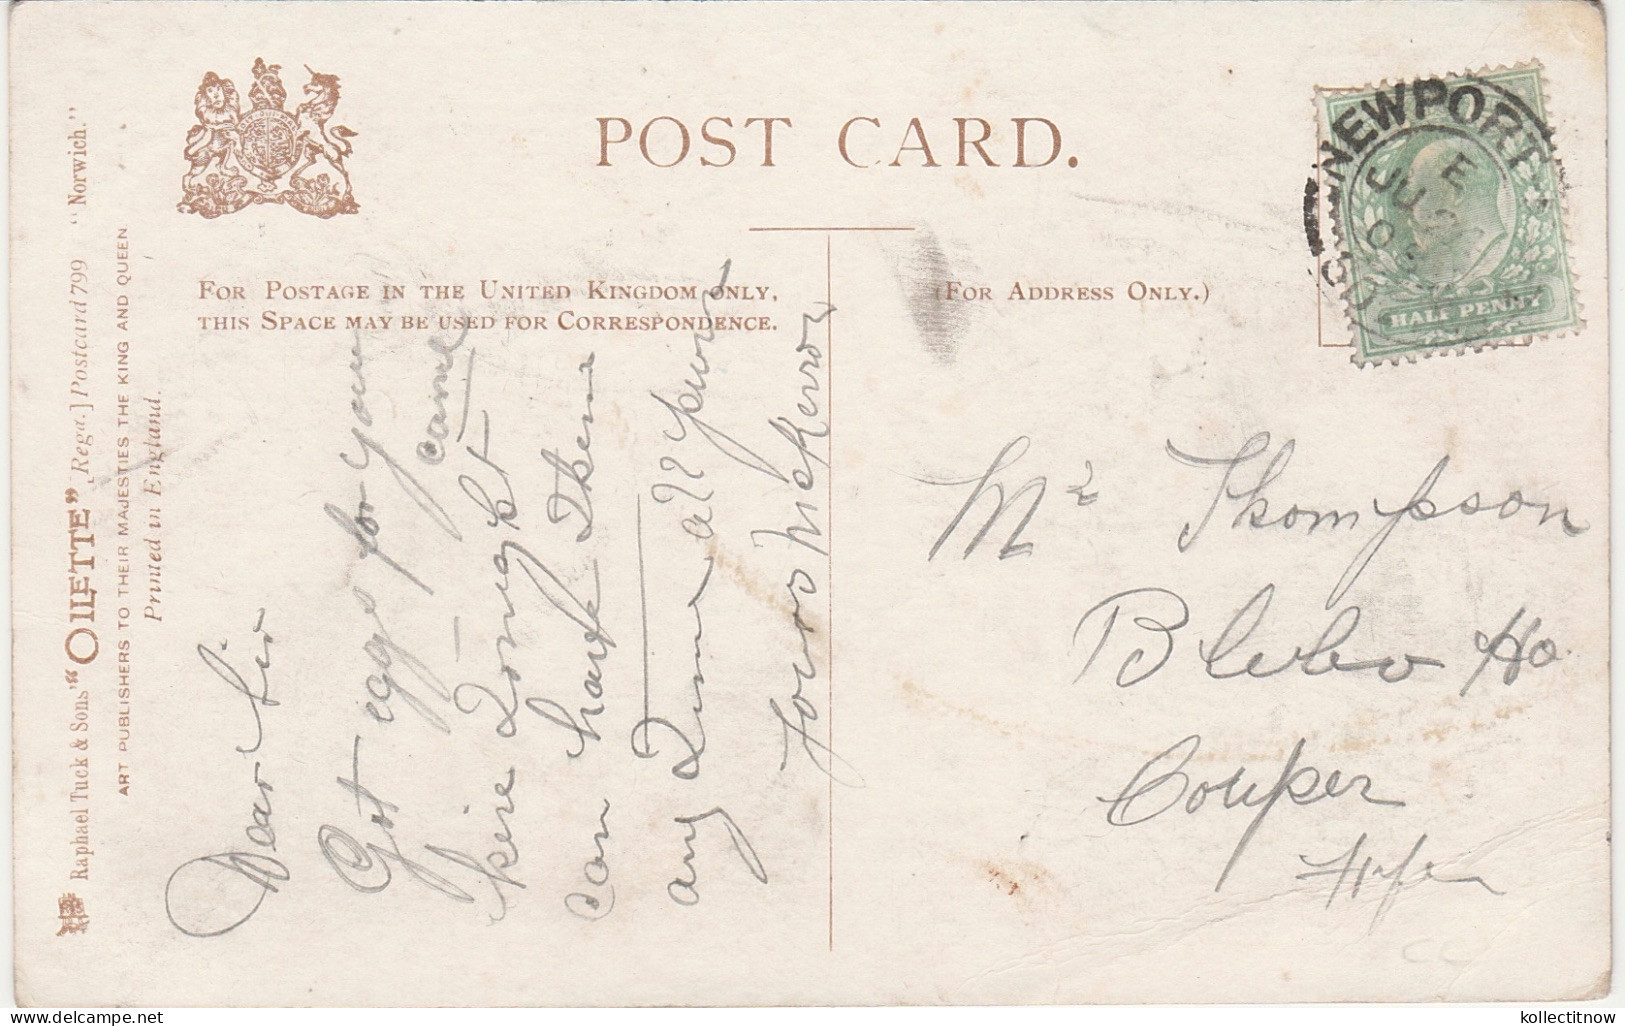 POST CARD.
FOR POSTAGE IN THE UNITED KINGDOM ONLY,
THIS SPACE MAY BE USED FOR CORRESPONDENCE.
(FOR ADDRESS ONLY.)
Raphael Tuck & Sons' "OILETTE" [Regd.] Postcard 799 "Norwich."
ART PUBLISHERS TO THEIR MAJESTIES THE KING AND QUEEN
Printed in England.
NEWPORT
E
JU
HALF PENNY
Dear Sir
Got eggs for you
came
here tonight
can have them
any time all yours
Yours McKerron
Mr Thompson
Blebo Ho
Couper
Fife
CC
kollectitnow